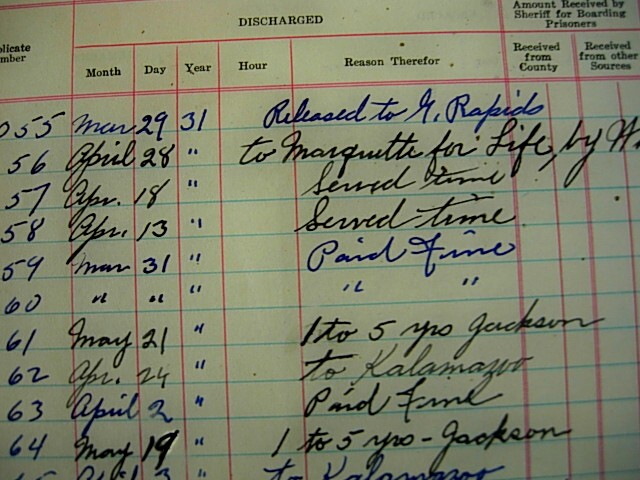 DISCHARGED
Amount Received by
Sheriff for Boarding
Prisoners
plicate
mber
Month Day Year Hour Reason Therefor
Received
from
County
Received
from other
Sources
055 Mar 29 31 Released to G. Rapids
56 April 28 " to Marquette for Life, by
57 Apr. 18 " Served time
58 Apr. 13 " Served time
59 Mar 31 " Paid Fine
60 " " " " "
61 May 21 " 1 to 5 yrs Jackson
62 Apr. 24 " to Kalamazoo
63 April 2 " Paid Fine
64 May 19 " 1 to 5 yrs - Jackson
to Kalamazoo